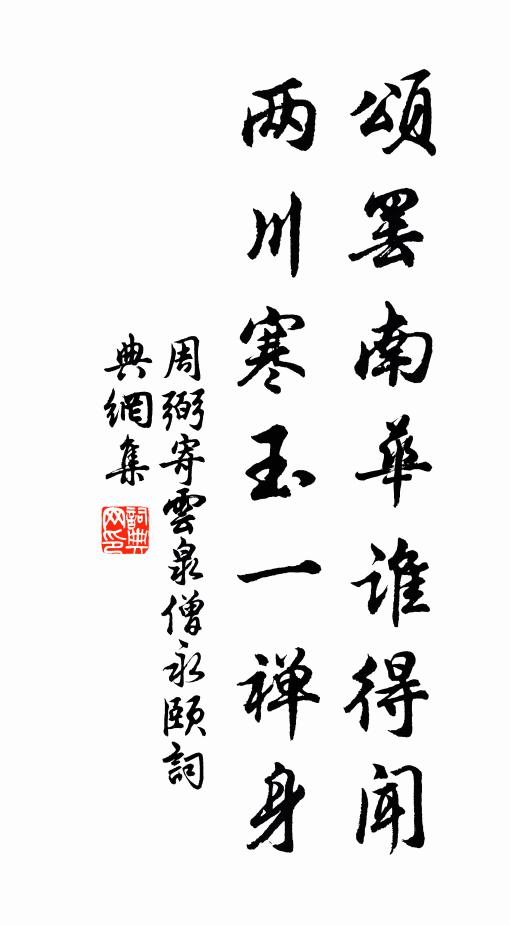 頌罢南華谁得闻
两川寒玉一禅身
周弼寄雲泉僧永颐詞
典網集
詞典
网印